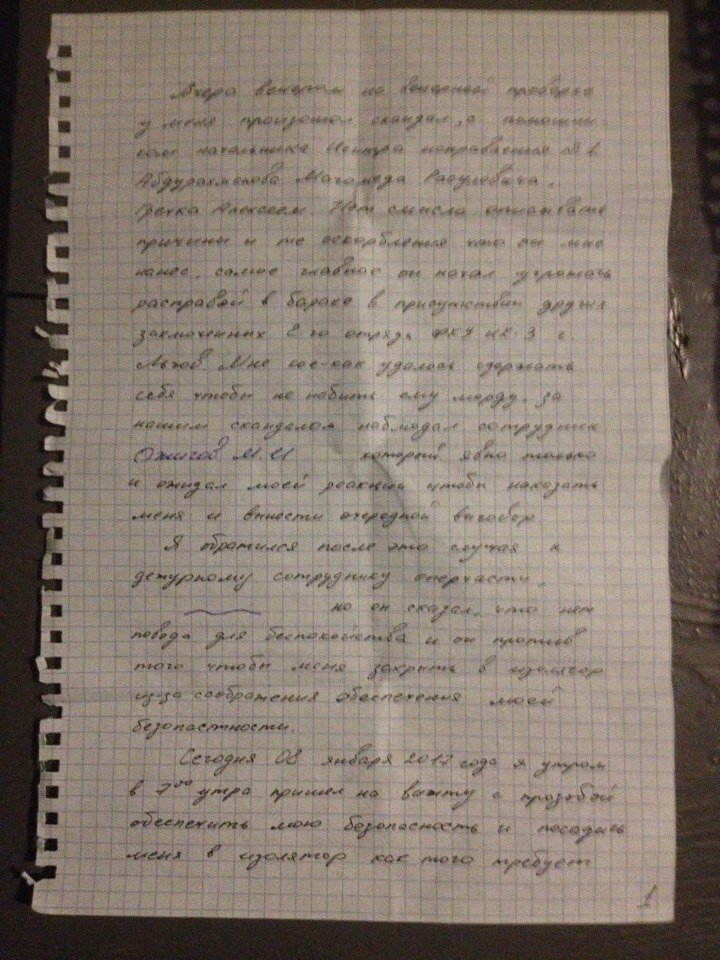 Вчера вечером на вечерней проверке
у меня произошол скандал, с помошни-
ком начальника Центра исправления № 1
Абдурахманова Магомеда Расуловича,
Гречка Алексеем. Нет смысла описывать
причины и те оскорбления что он мне
нанес, самое главное он начал угрожать
расправой в бараке в присутствии других
заключенных 2го отряда ФКУ ИК-3 г.
Льгов Мне кое-как удалось здержать
себя чтобы не набить ему морду. За
нашим скандалом наблюдал сотрудник
Ожигов М.И который явно только
и ожидал моей реакции чтобы наказать
меня и вынести очередной выговор.
Я обратился после это случая к
дежурному сотруднику оперчасти,
но он сказал, что нет
повода для беспокойства и он против
того чтобы меня закрыть в изолятор
из-за соображения обеспечения моей
безопастности.
Сегодня 08 января 2012 года я утром
в 7 00 утра пришел на вахту с прозьбой
обеспечить мою безопасность и посадить
меня в изолятор как того требует
1